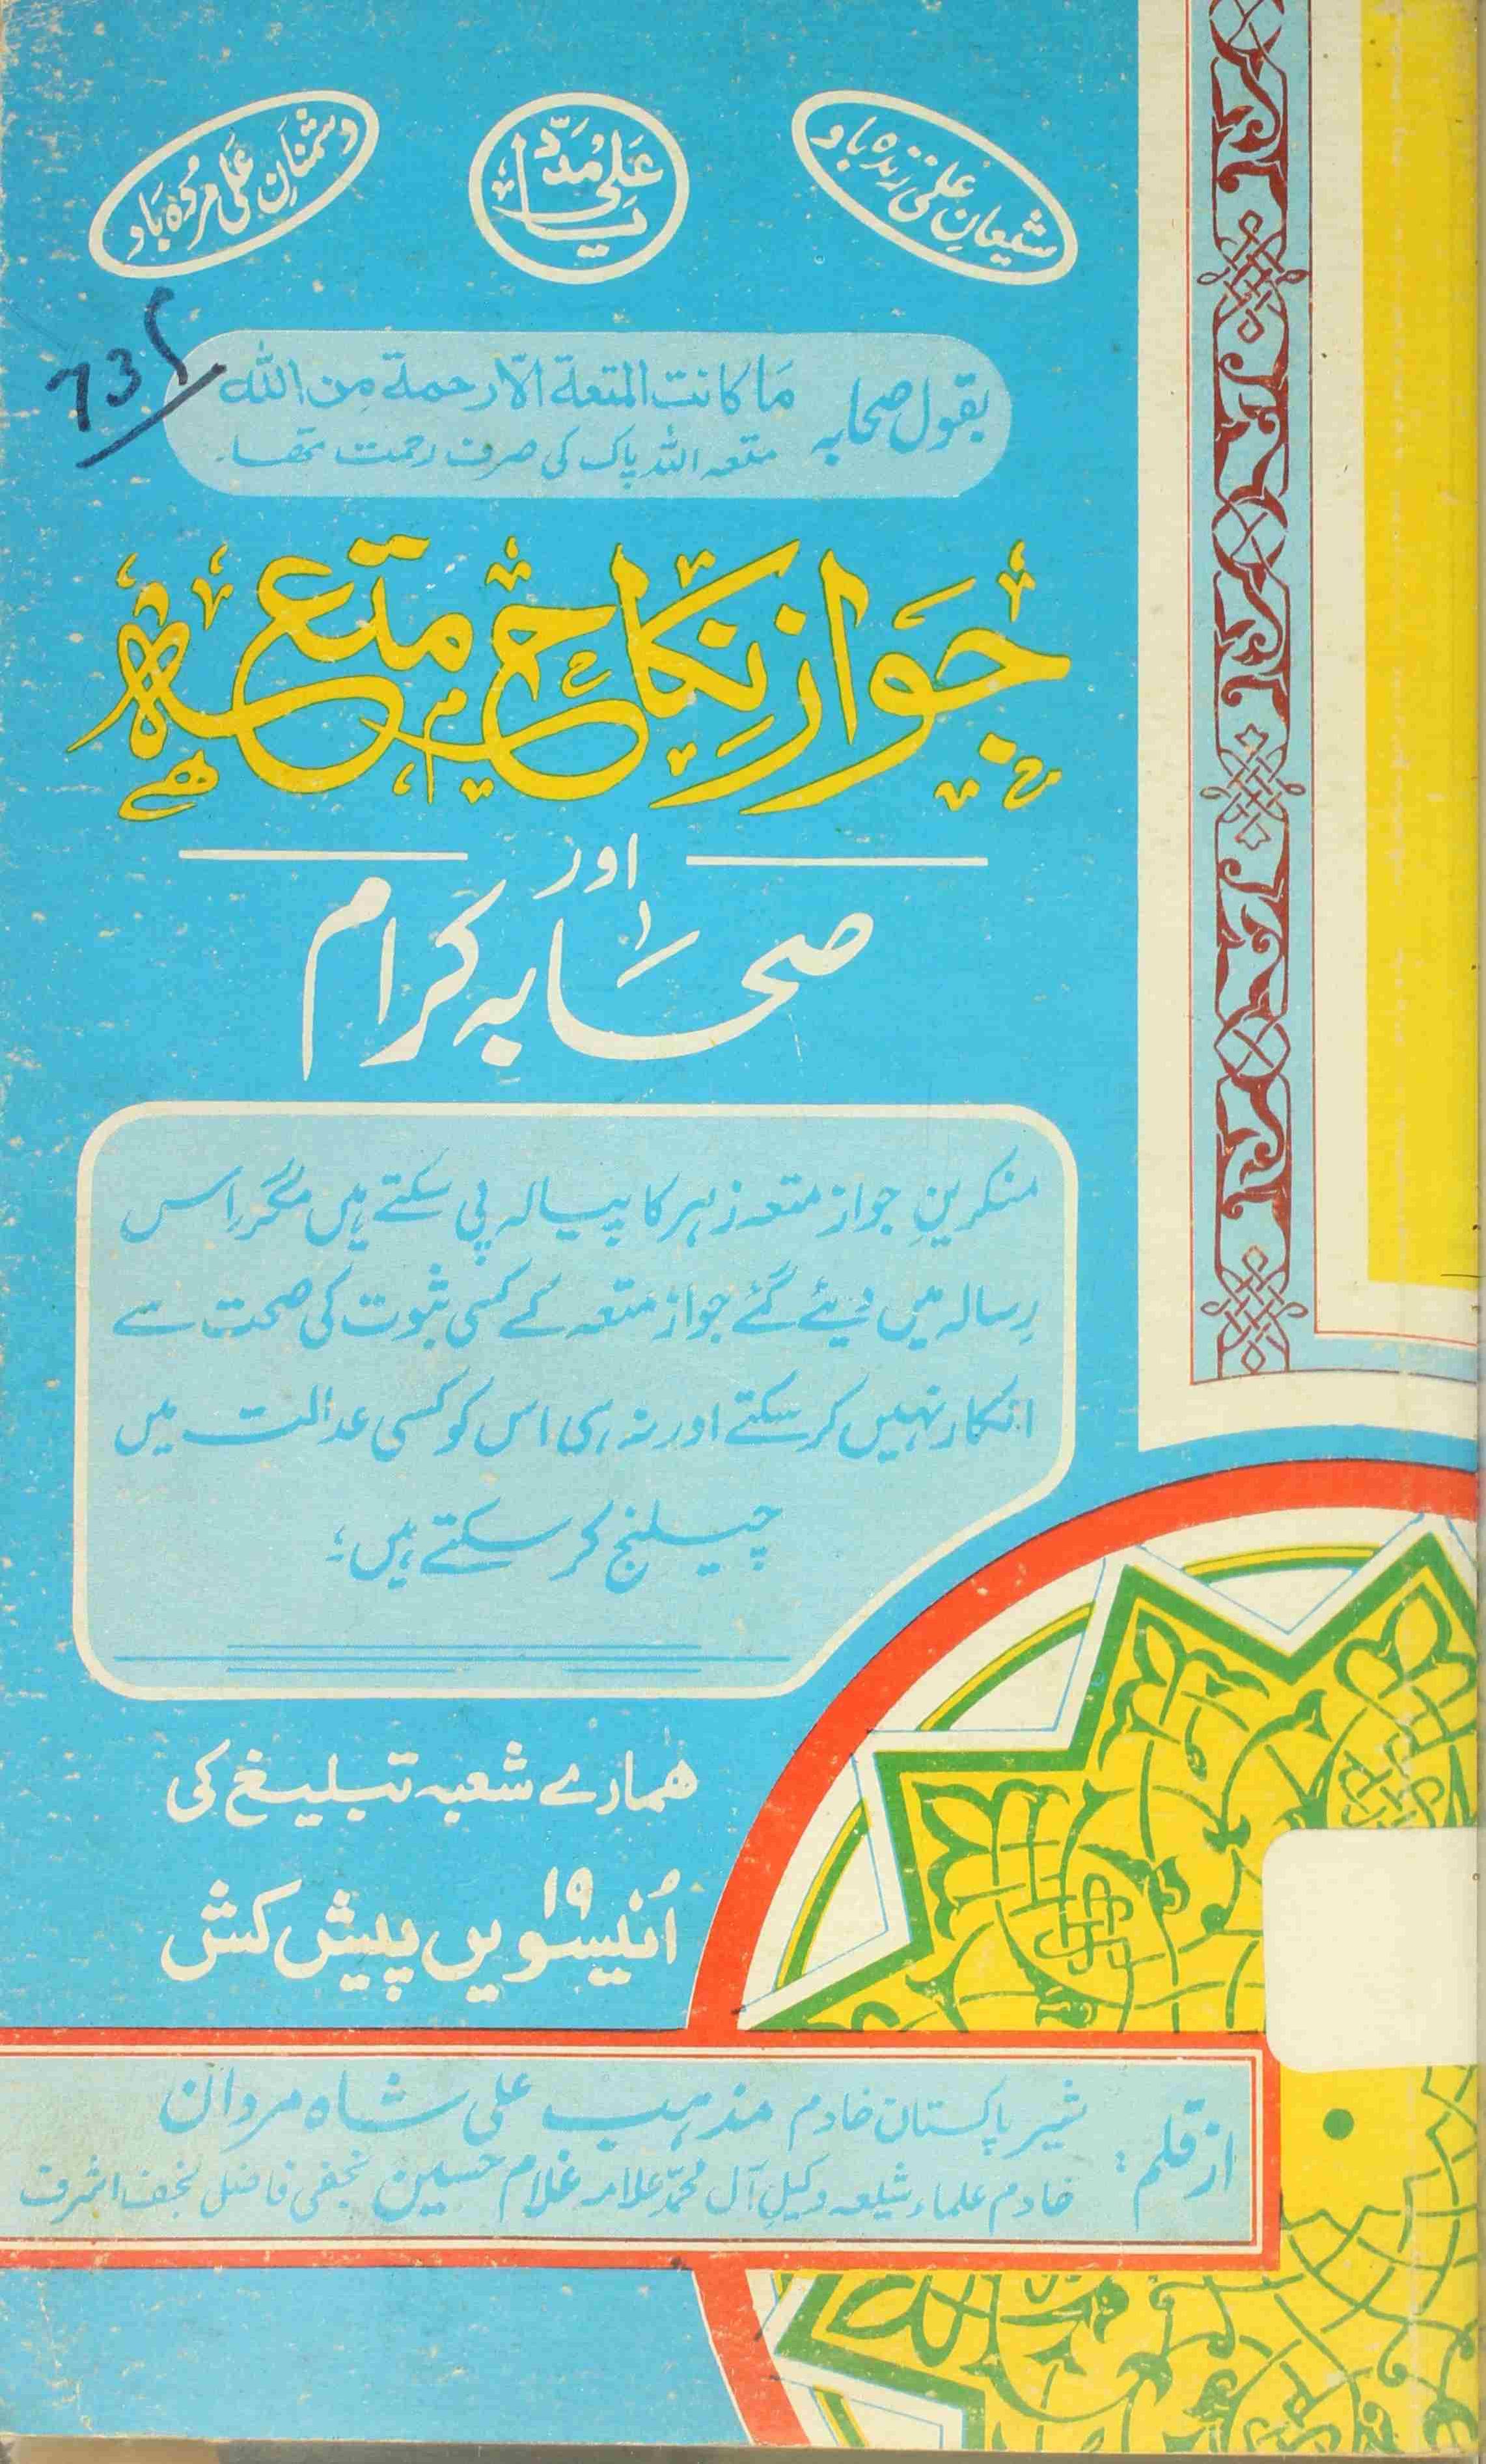 شیعانِ علی زندہ باد
یا علی مدد
دشمنانِ علی مردہ باد
بقول صحابہ مَا کانت المتعة الّا رحمة مِن اللہ
متعہ اللہ پاک کی صرف رحمت تھا۔
جَوازِ نِکاحِ متعہ
اور
صحابہ کرام
منکرینِ جواز متعہ زہر کا پیالہ پی سکتے ہیں مگر اس
رسالہ میں دیئے گئے جواز متعہ کے کسی ثبوت کی صحت سے
انکار نہیں کر سکتے اور نہ ہی اس کو کسی عدالت میں
چیلنج کر سکتے ہیں؛
ہمارے شعبہ تبلیغ کی
۱۹
اُنیسویں پیش کش
از قلم: شیر پاکستان خادم مذہب علی شاہ مردان
خادم علماء شیعہ وکیلِ آلِ محمّد علامہ غلام حسین نجفی فاضل نجف اشرف